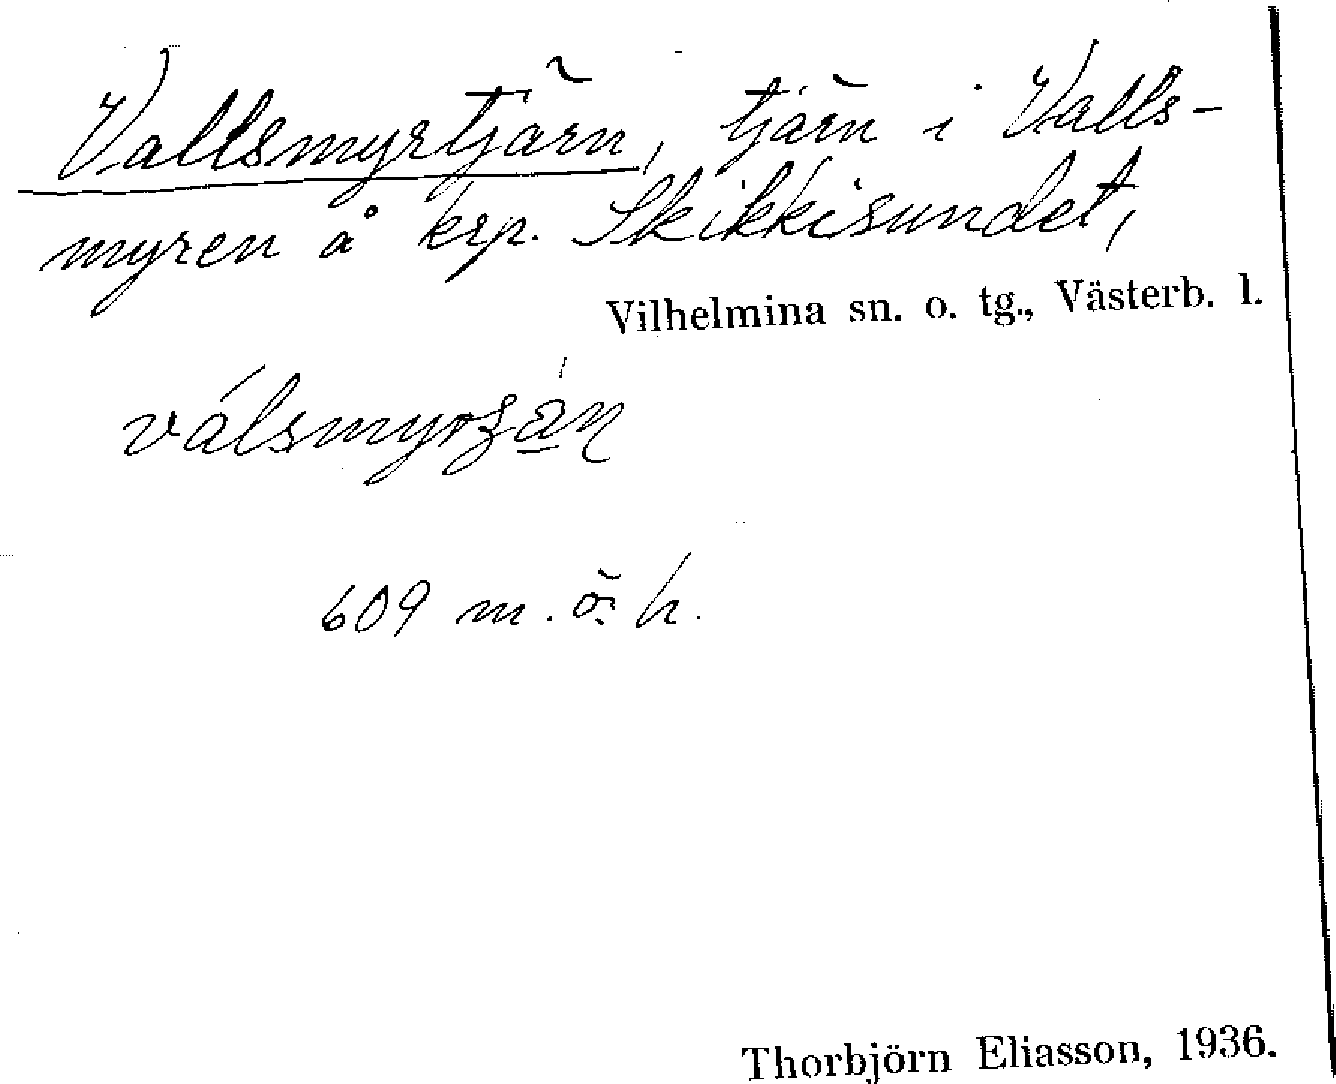 Vallsmyrtjärn, tjärn i Valls-
myren å krp. Skikkisundet,
Vilhelmina sn. o. tg., Västerb. l.
609 m. ö. h.
Thorbjörn Eliasson, 1936.